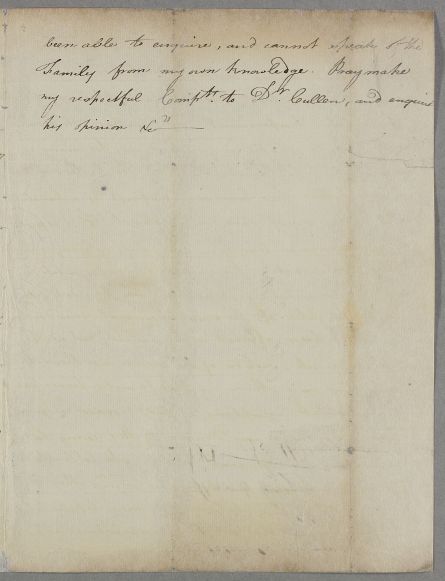 been able to enquire, and cannot speak of the
Family from my own knowledge. Pray make
my respectful Comp.ts to D.r Cullen, and enquire
his opinion &c"